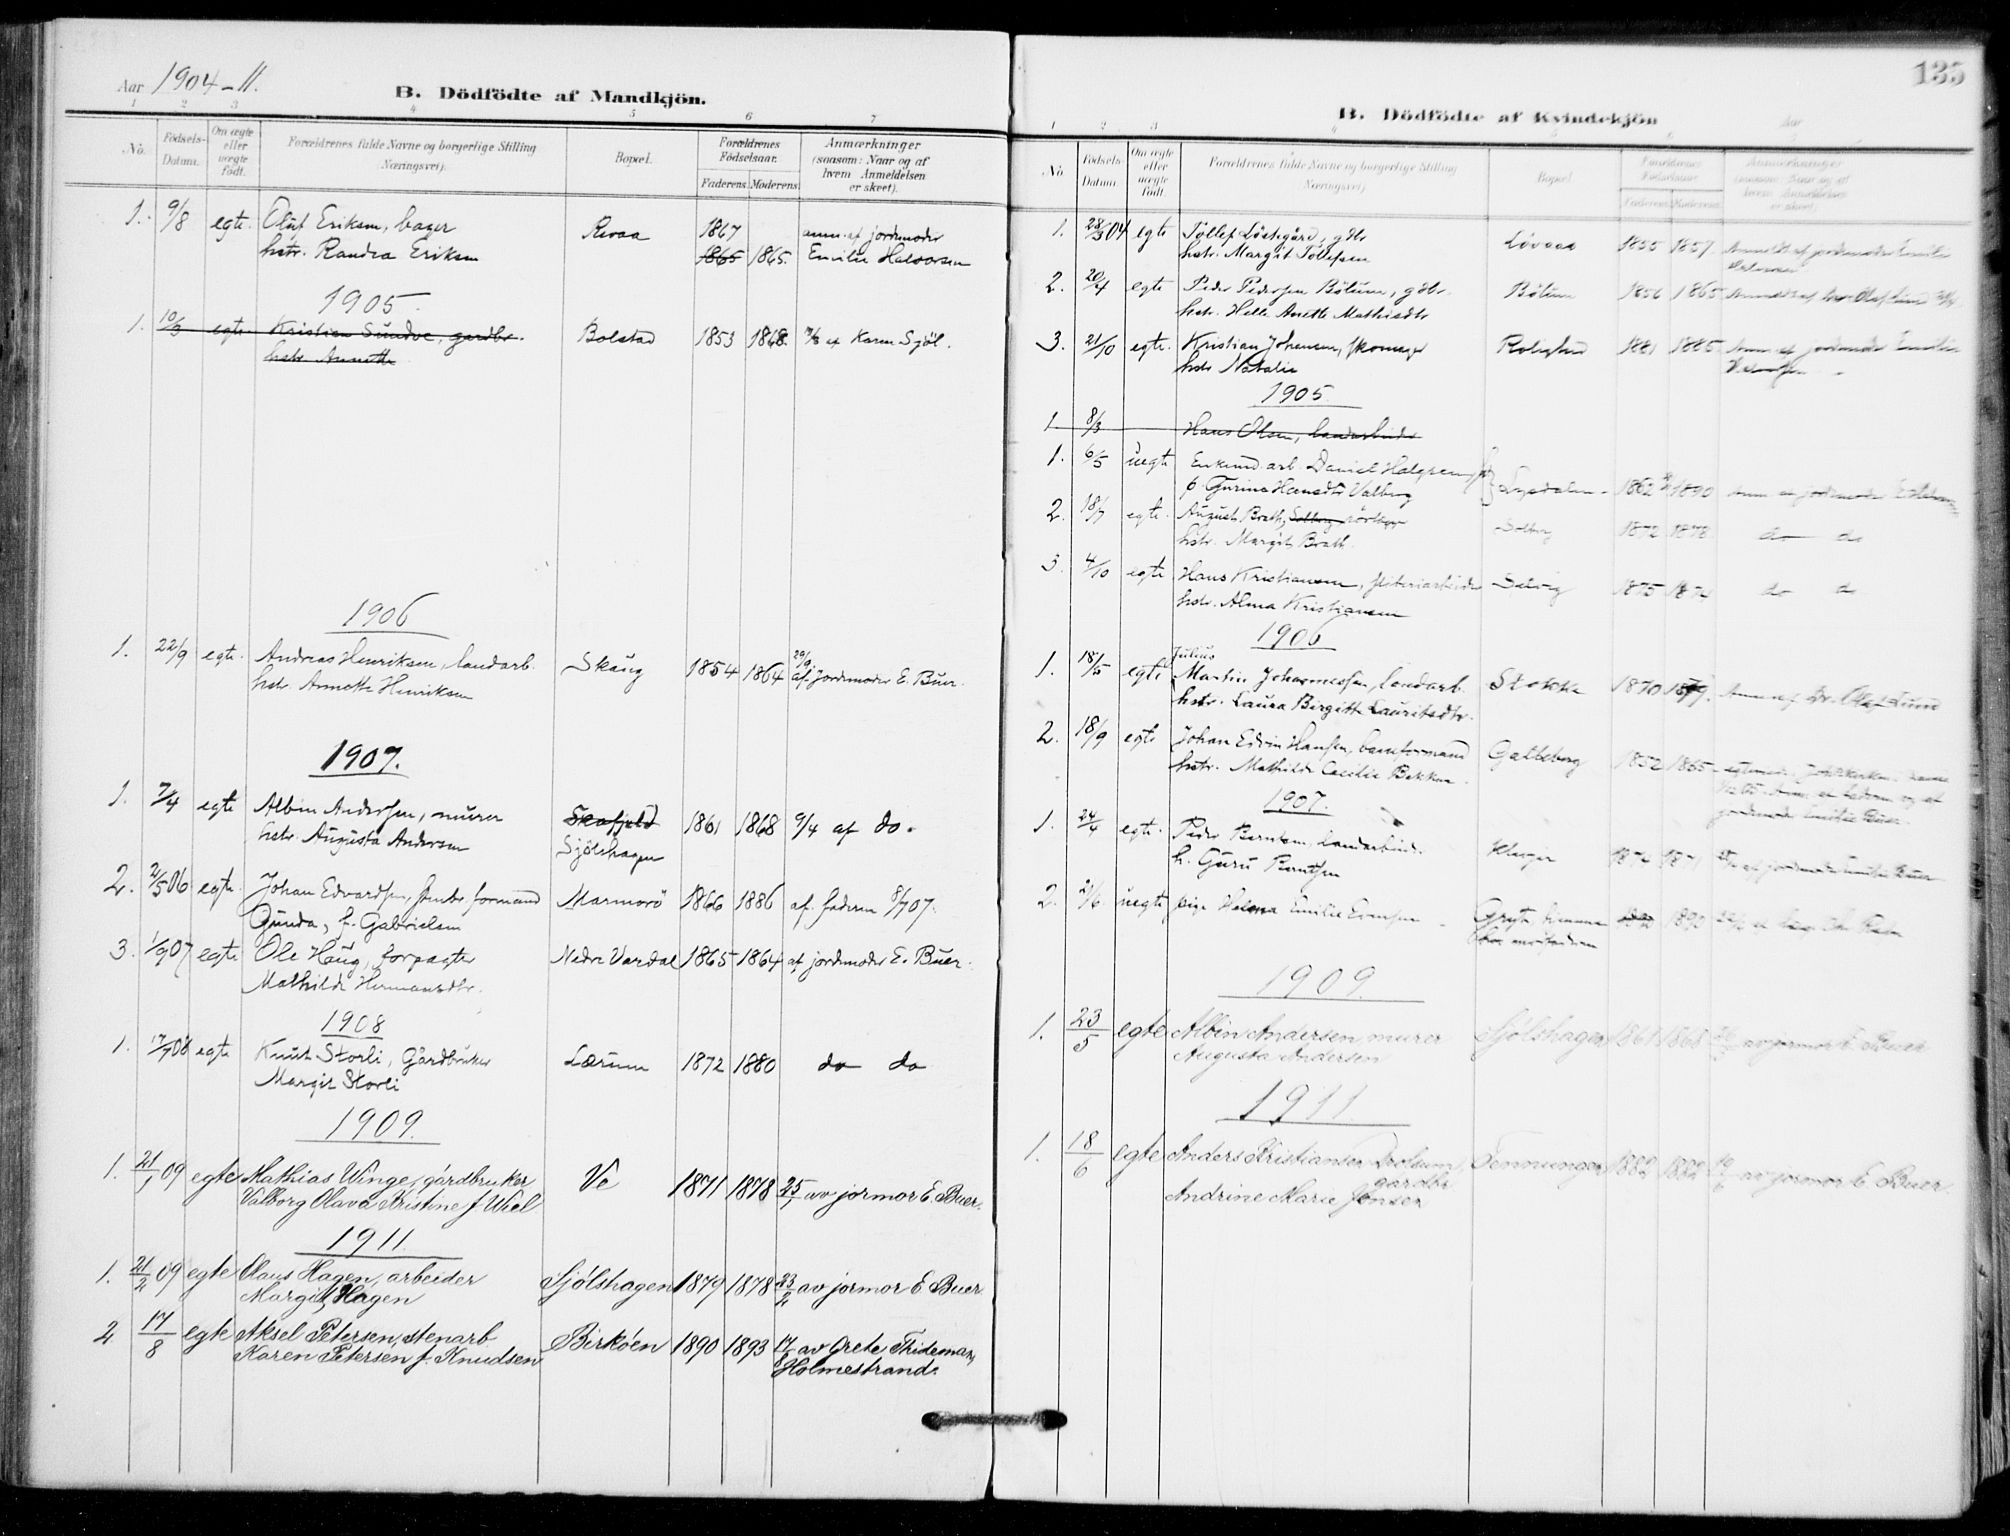 Aar 1904-11.
B. Dödfödte af Mandkjön.
1 2 3 4 5 6 7
No.
Födsels-Datum.
Om ægte eller uægte født.
Forældrenes fulde Navne og borgerlige Stilling (Næringsvei).
Bopæl.
Forældrenes Födselsaar.
Faderens. Moderens.
Anmærkninger (saasom: Naar og af hvem Anmeldelsen er skeet).
1. 9/8 egte. Oluf Eriksen, bager Revaa 1867 anm. af jordmoder
hstr. Randea Eriksen 1865 1865. Emilie Halvorsen
1905.
1. 10/3 egte. Kristian Sundve, gardbr. Bolstad 1853 1868. af Karen Sjöl.
hstr. Annette
1906
1. 22/9 egte. Andreas Henriksen, landarb. Skaug 1854 1864 29/9 af jordmoder E. Buer.
hstr. Annette Henriksen
1907.
1. 7/4 egte Albin Andersen, murer Skafjeld 1861 1868 9/4 af do.
hstr. Augusta Andersen Sjölshagen
2. 2/5 06 egte. Johan Edvardsen, stenbr. formand Marmorö 1866 1886 af faderen 8/7 07.
Gunda, f. Gabrielsen
3. 1/9 07 egte Ole Haug, forpagter Nedre Vardal 1865 1864 af jordmoder E. Buer.
Mathilde Hermansdtr.
1908
1. 17/7 08 egte Knut Storli, Gårdbruker Lærum 1872 1880 do do
Margit Storli
1909.
1. 21/1 09 egte Mathias Winge, gårdbruker Ve 1871 1878 25/1 av jormor E. Buer.
Valborg Olava Kristine f. Wiel
1911.
1. 21/2 09 egte Olaus Hagen, arbeider Sjölshagen 1879 1878 23/2 av jormor E Buer
Margit Hagen
2 17/8 egte Aksel Petersen, stenarb Birköen 1890 1893 17/8 av Grete Thideman,
Karen Petersen f. Knudsen Holmestrand.
135
B. Dödfödte af Kvindekjön
Aar
1 2 3
No.
Födsels-Datum.
Om ægte eller uægte födt.
Forældrenes fulde Navne og borgerlige Stilling (Næringsvei)
Bopæl.
Forældrenes Födselsaar.
Faderens. Moderens.
Anmærkninger (saasom: Naar og af hvem Anmeldelsen er skeet)
1. 28/3 04 egte Tollef Lösegård, gdbr Lövaas 1855 1857. Anmeldt af jordmoder Emilie
hstr. Margit Tollefsen
2. 20/4 egte Peder Pedersen Bölum, gdbr. Bölum 1856 1865 Anmeldt af Dr. Olaf Lund
hstr. Helle Anette Mathisdtr
3. 21/10 egte. Kristian Johansen, skomager Rolighed 1881 1885. Anm. af jordmoder Emilie
hstr. Natalie
1905.
1 8/3 Hans Olsen, landarbeider
1. 6/5 uegte Enkemd. arb. Daniel Halgrensen
p. Gurine Hansdtr Valberg 1862 1890
2. 18/7 egte. August Brath, Solberg Solberg 1872 1878. do do
hstr. Margit Brath.
3. 4/10 egte Hans Kristiansen, Selvig 1875 1874 do do
hstr. Alma Kristiansen
1906
1. 18/5 egte Julius
Martin Johannessen, landarb. Stokke 1870 1879. Anm. af Dr. Olaf Lund
hstr. Laura Birgitte Lauritsdtr.
2. 18/9 egte Johan Edvin Hansen, baneformand Galleberg 1852 1865
hstr. Mathilde Cecilie Bekken jordmoder Emilie Buer.
1907.
1. 24/4 egte. Peder Berntsen, landarbeid. Klever 1872 1871 af jordmoder Emilie Buer
h. Guru Berntsen
2. 21/6 uegte pige Helena Emilie Evensen Gryte, hjemme 1890
hos
1909.
1. 23/5 egte Albin Andersen murer Sjölshagen 1861 1868 av jormor E. Buer
Augusta Andersen
1911.
1. 18/6 egte Anders Kristiansen Trolsum, Tenningen 1882 1882 av jormor E. Buer.
gardbr
Andrine Marie Jensen